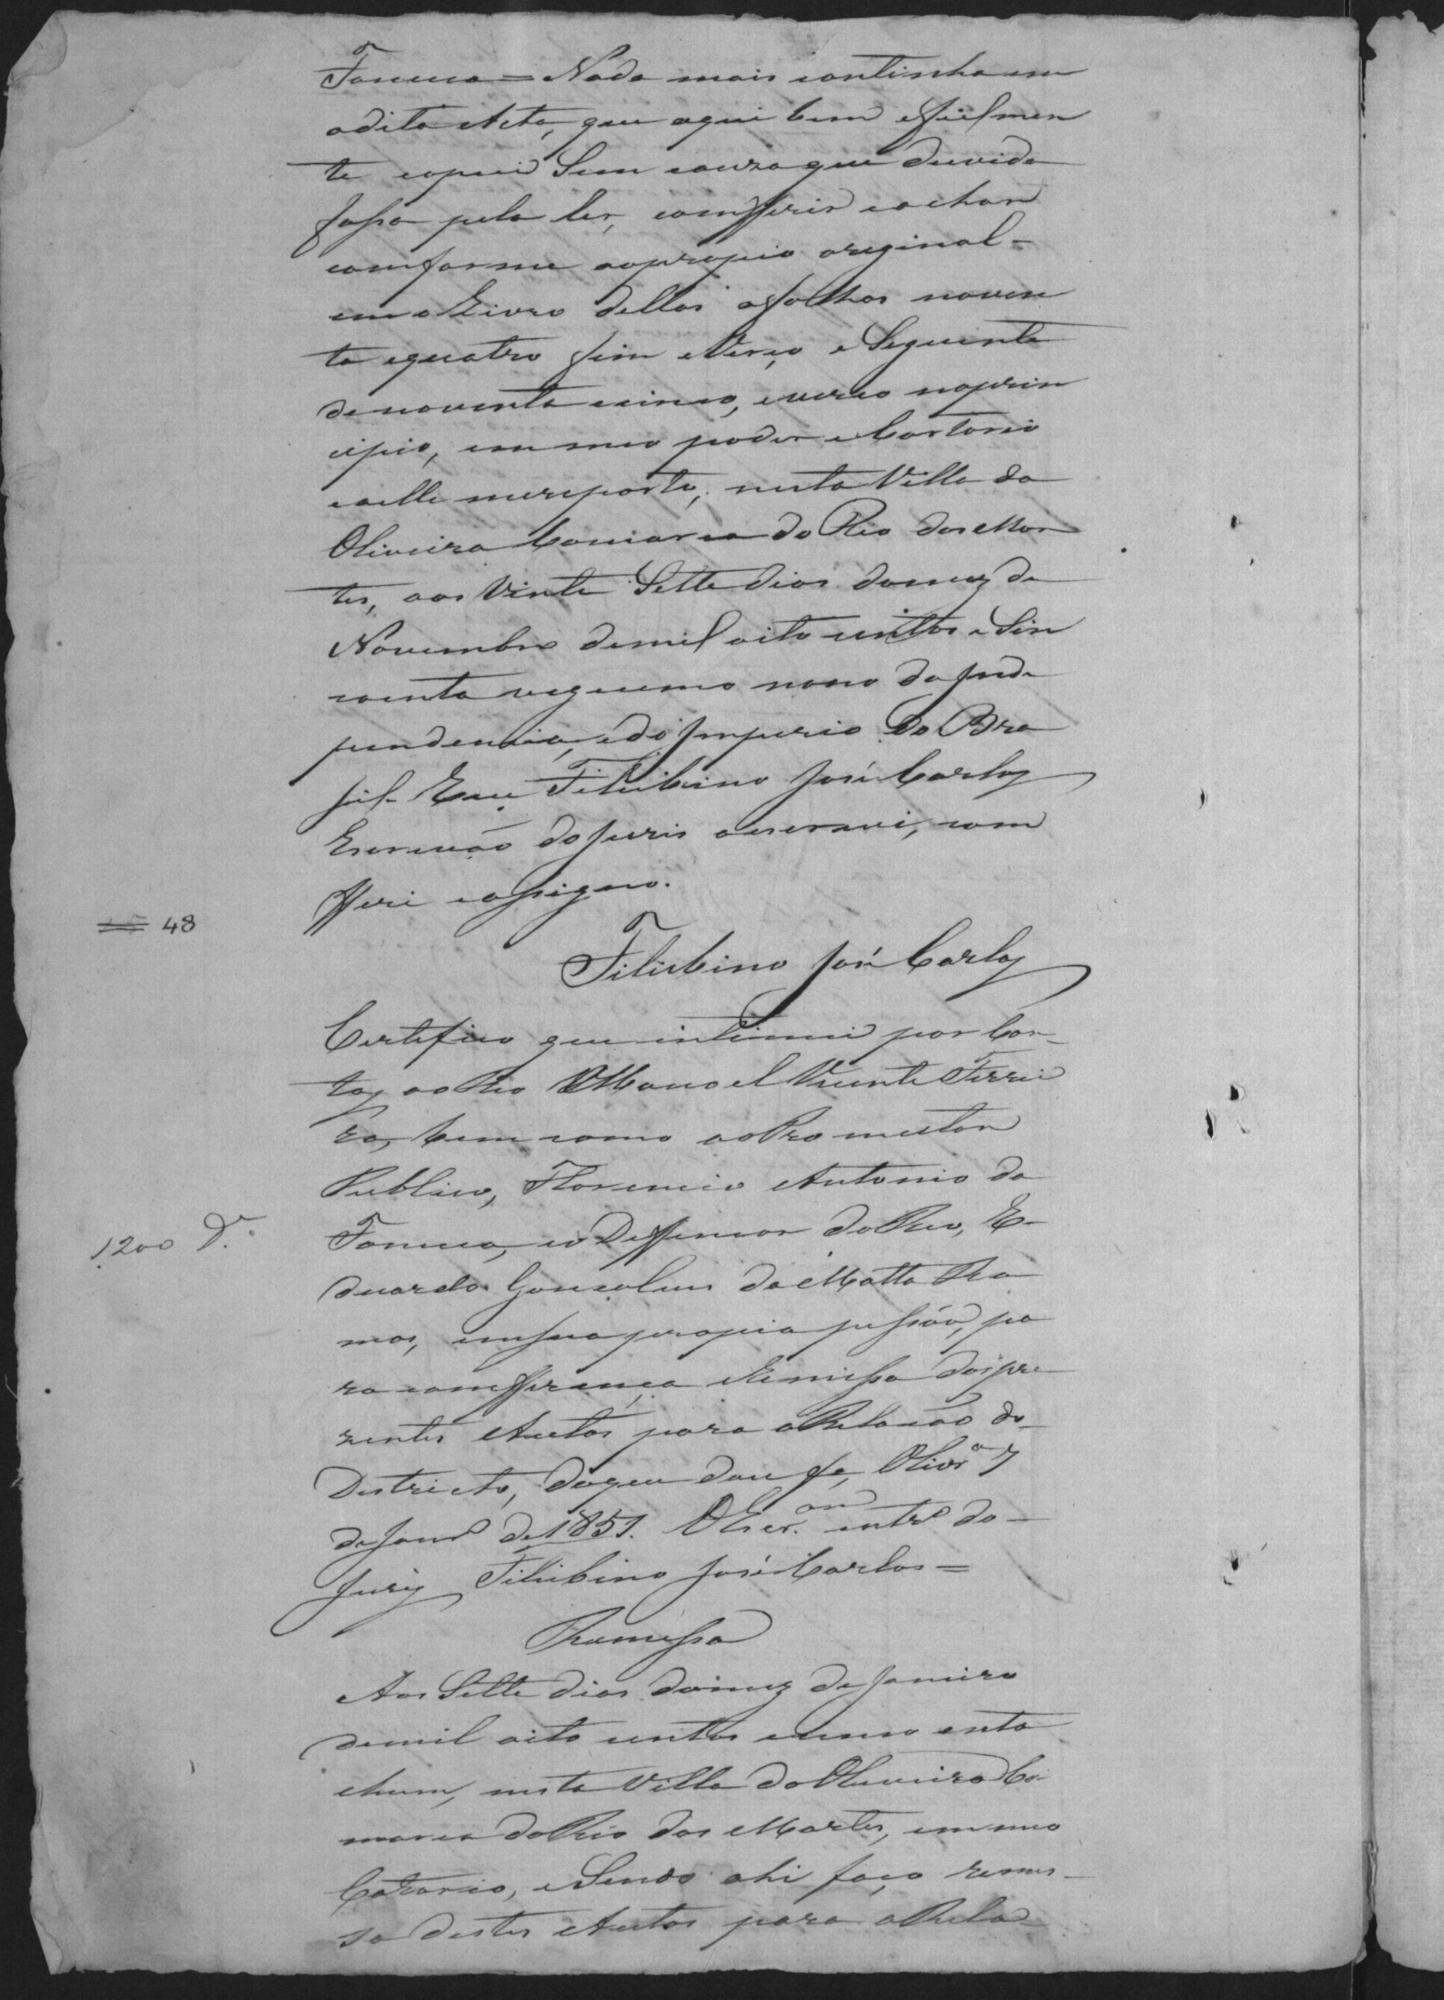 Fonseca = Nada mais continha em
a dita Acta, que aqui bem e fielmen
te copiei Sem couza que duvida
fassa pela ler, comfferir e achar
comforme ao propio original -
em o Livro dellas a folhas noven
ta e quatro fim e Verço e Seguinte
de noventa e cinco, e verço no prin
cipio, em meo poder e Cartorio
e a elle me reporto; nesta Villa da
Oliveira Comarca do Rio das Mor
tes, aos Vinte Sette dias do mez de
Novembro de mil oito centos e Sin
coenta vegecimo nono da Inde
pendencia, e do Imperio do Bra
sil. Eu Felisbino José Carlos
Escrivão do Juris a escravi, com
fferi e assigno.
= 48
Felisbino José Carlos
Certifico que intimei por Car-
tas ao Reo Manoel Vicente Ferrei
ra, bem como ao Promuctor
Publico, Florencio Antonio da
1200 Dr.
Fonseca, e o Deffençor do Reo, E-
duardo Gonçalves da Motta Ra
mos, em sua propia pessoa, pa
ra comfferença e Remessa dos pre
zentes Autos para a Relação do
Destricto, do que dou fe, Olivra 7
de Janro de 1851. O Escram intro do
Jury Felisbino José Carlos =
Remessa
Aos Sette dias do mez de Janeiro
de mil oito centos e cinco enta
e hum, nesta Villa da Oliveira Co
marca do Rio das Mortes, em meo
Catorio, e Sendo ahi faço remes-
sa destes Autos para a Rela